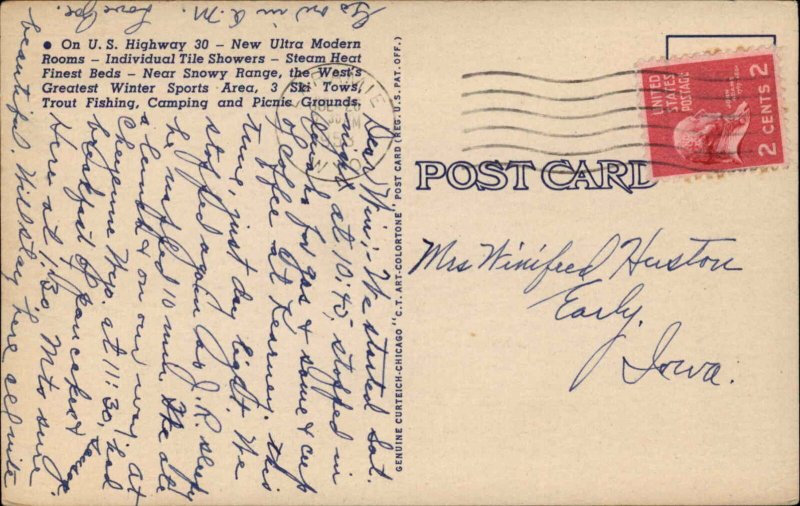 ● On U.S. Highway 30 – New Ultra Modern
Rooms – Individual Tile Showers – Steam Heat
Finest Beds – Near Snowy Range, the West's
Greatest Winter Sports Area, 3 Ski Tows,
Trout Fishing, Camping and Picnic Grounds.
Dear Wini:- We started Sat.
night at 10:45, stopped in
for gas & some & cup
of coffee at Kearney. this
time, just day light. We
stopped again as J. R. sleepy
he napped 10 min. We ate
a lunch & on our way. At
Cheyenne Wyo at 11:30, had
breakfast of pancakes &
Here at 1:30. Mts sure
beautiful. Will stay here all nite
Go on in A.M.
Love
GENUINE CURTEICH-CHICAGO "C.T. ART-COLORTONE" POST CARD (REG. U.S. PAT. OFF.)
POST CARD
UNITED
STATES
POSTAGE
2 CENTS 2
Mrs Winifred Huston
Early,
Iowa.